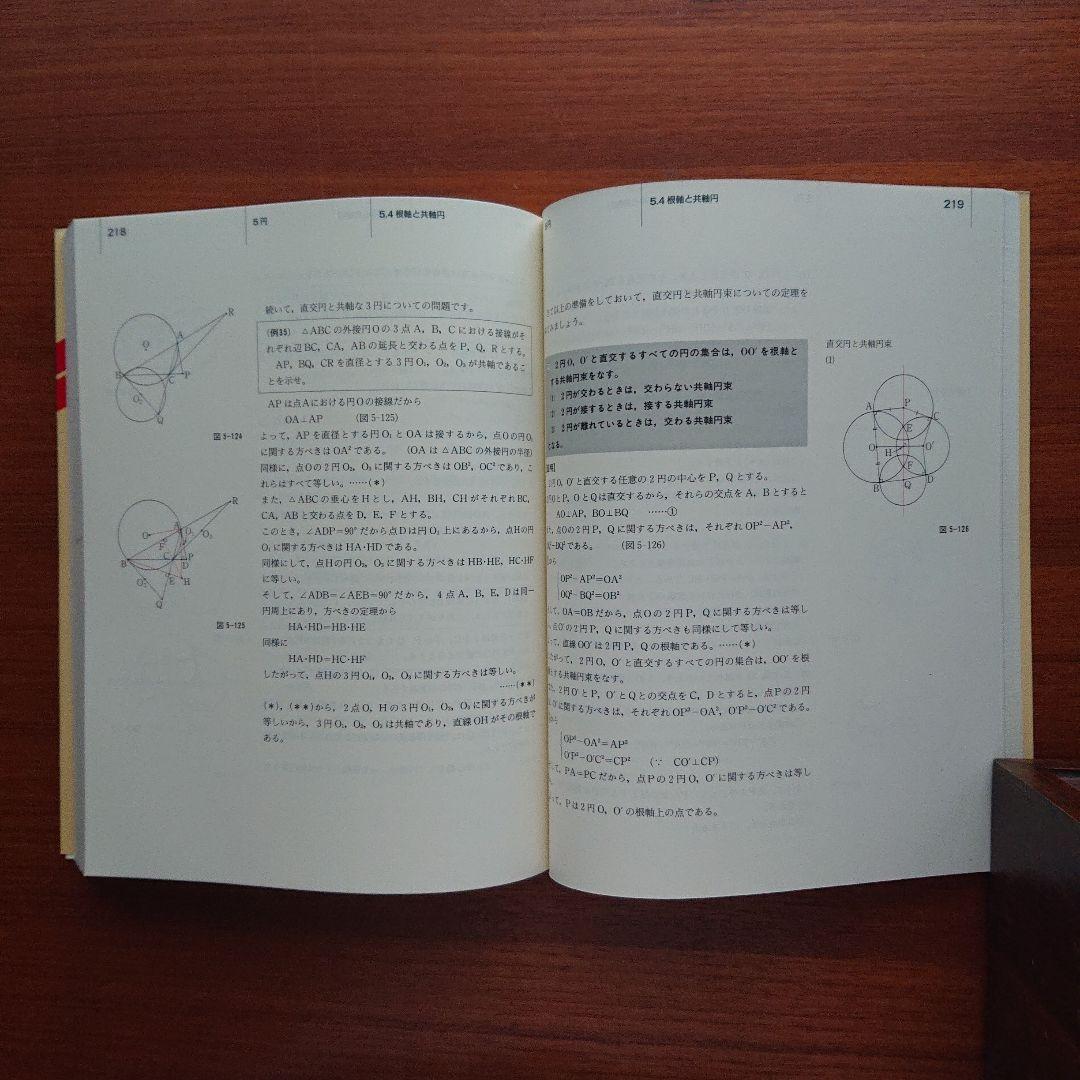 218
5 円
5.4 根軸と共軸円
続いて，直交円と共軸な3円についての問題です。
(例35) △ABCの外接円Oの3点A，B，Cにおける接線がそ
れぞれ辺BC，CA，ABの延長と交わる点をP，Q，Rとする。
AP，BQ，CRを直径とする3円O₁，O₂，O₃が共軸であるこ
とを示せ。
APは点Aにおける円Oの接線だから
OA⊥AP (図5-125)
よって，APを直径とする円O₁とOAは接するから，点Oの円O₁
に関する方べきはOA²である。 (OAは△ABCの外接円の半径)
同様に，点Oの2円O₂，O₃に関する方べきはOB²，OC²であり，こ
れらはすべて等しい。……(＊)
また，△ABCの垂心をHとし，AH，BH，CHがそれぞれBC，
CA，ABと交わる点をD，E，Fとする。
このとき，∠ADP=90°だから点Dは円O₁上にあるから，点Hの円
O₁に関する方べきはHA·HDである。
同様にして，点Hの円O₂，O₃に関する方べきはHB·HE，HC·HF
に等しい。
そして，∠ADB=∠AEB=90°だから，4点A，B，E，Dは同一
円周上にあり，方べきの定理から
HA·HD=HB·HE
同様に
HA·HD=HC·HF
したがって，点Hの3円O₁，O₂，O₃に関する方べきは等しい。
……(＊＊)
(＊)，(＊＊)から，2点O，Hの3円O₁，O₂，O₃に関する方べきが
等しいから，3円O₁，O₂，O₃は共軸であり，直線OHがその根軸で
ある。
R
A
O
B
C
P
O₂
Q
図5-124
R
A
O₁
O₃
O
B
C
P
D
O₂
E
H
Q
図5-125
5.4 根軸と共軸円
219
以上の準備をしておいて，直交円と共軸円束についての定理を
みましょう。
2円O，O′と直交するすべての円の集合は，OO′を根軸と
する共軸円束をなす。
2円が交わるときは，交わらない共軸円束
2円が接するときは，接する共軸円束
2円が離れているときは，交わる共軸円束
となる。
円O，O′と直交する任意の2円の中心をP，Qとする。
OとP，OとQは直交するから，それらの交点をA，Bとすると
AO⊥AP，BO⊥BQ ……①
点Oの2円P，Qに関する方べきは，それぞれOP²−AP²，
−BQ²である。 (図5-126)
から
OP²−AP²=OA²
OQ²−BQ²=OB²
して，OA=OBだから，点Oの2円P，Qに関する方べきは等し
点O′の2円P，Qに関する方べきも同様にして等しい。
って，直線OO′は2円P，Qの根軸である。……(＊)
たがって，2円O，O′と直交するすべての円の集合は，OO′を根
とする共軸円束をなす。
2円O′とP，O′とQとの交点をC，Dとすると，点Pの2円
O′に関する方べきは，それぞれOP²−OA²，O′P²−O′C²である。
から
OP²−OA²=AP²
O′P²−O′C²=CP² (∵ CO′⊥CP)
して，PA=PCだから，点Pの2円O，O′に関する方べきは等し
って，Pは2円O，O′の根軸上の点である。
直交円と共軸円束
(1)
P
A
C
E
O
H
O′
F
B
Q
D
図5-126